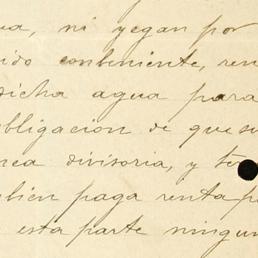 ua, ni yegan por
ido conbeniente, ren
dicha agua para
obligacion de que su
nea divisoria, y te
bien paga renta p
esta parte ningun